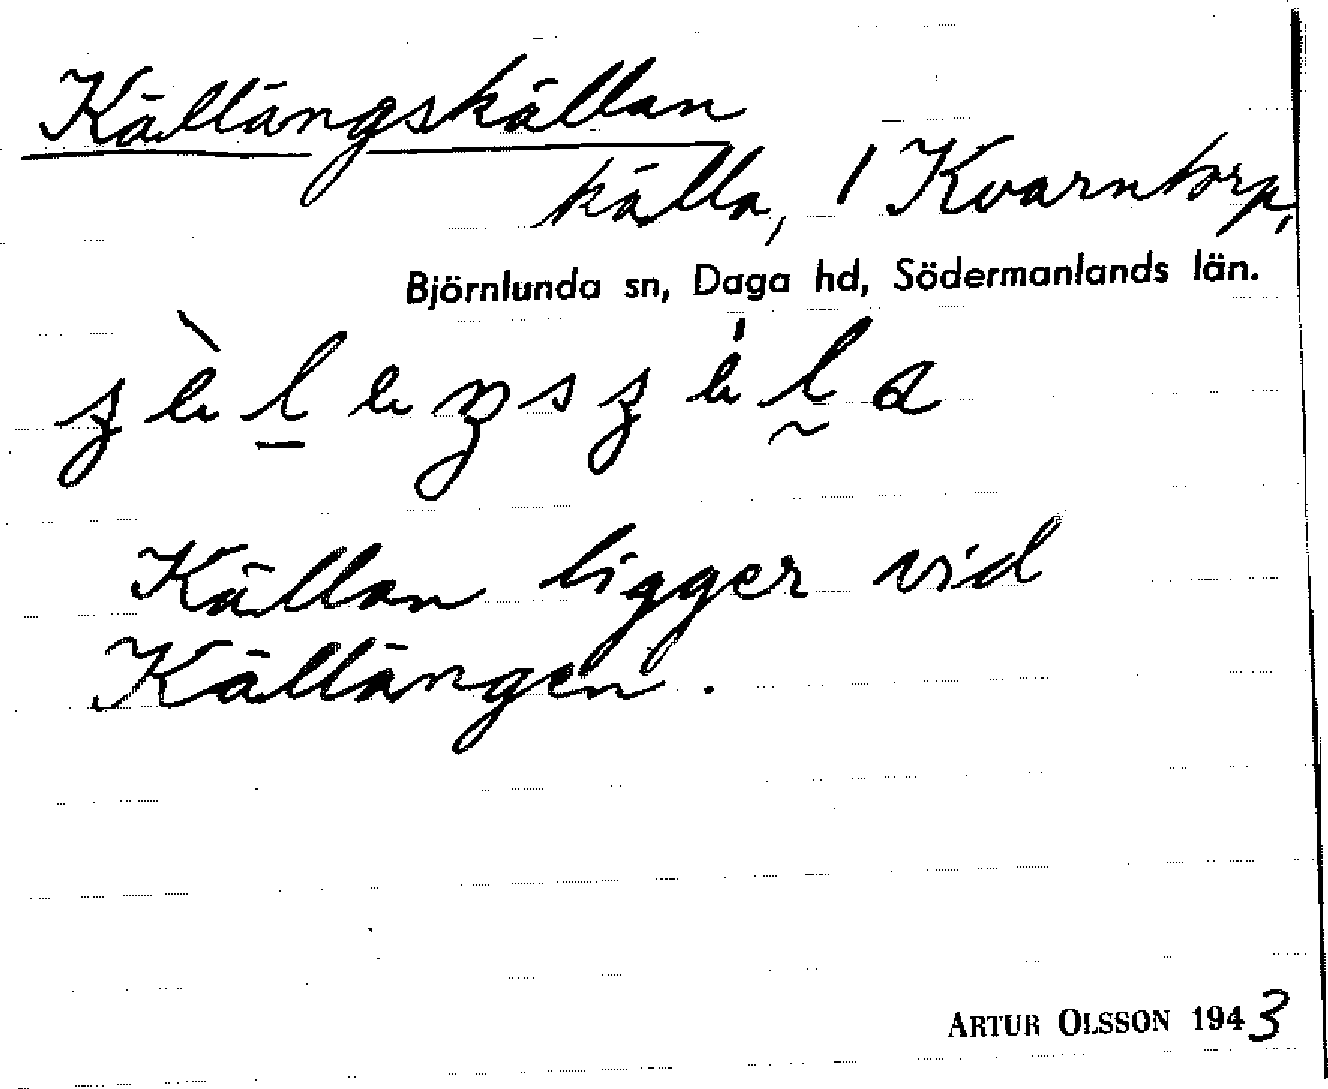 Källängskällan
källa, / Kvarntorp,
Björnlunda sn, Daga hd, Södermanlands län.
Källan ligger vid
Källängen.
ARTUR OLSSON 1943